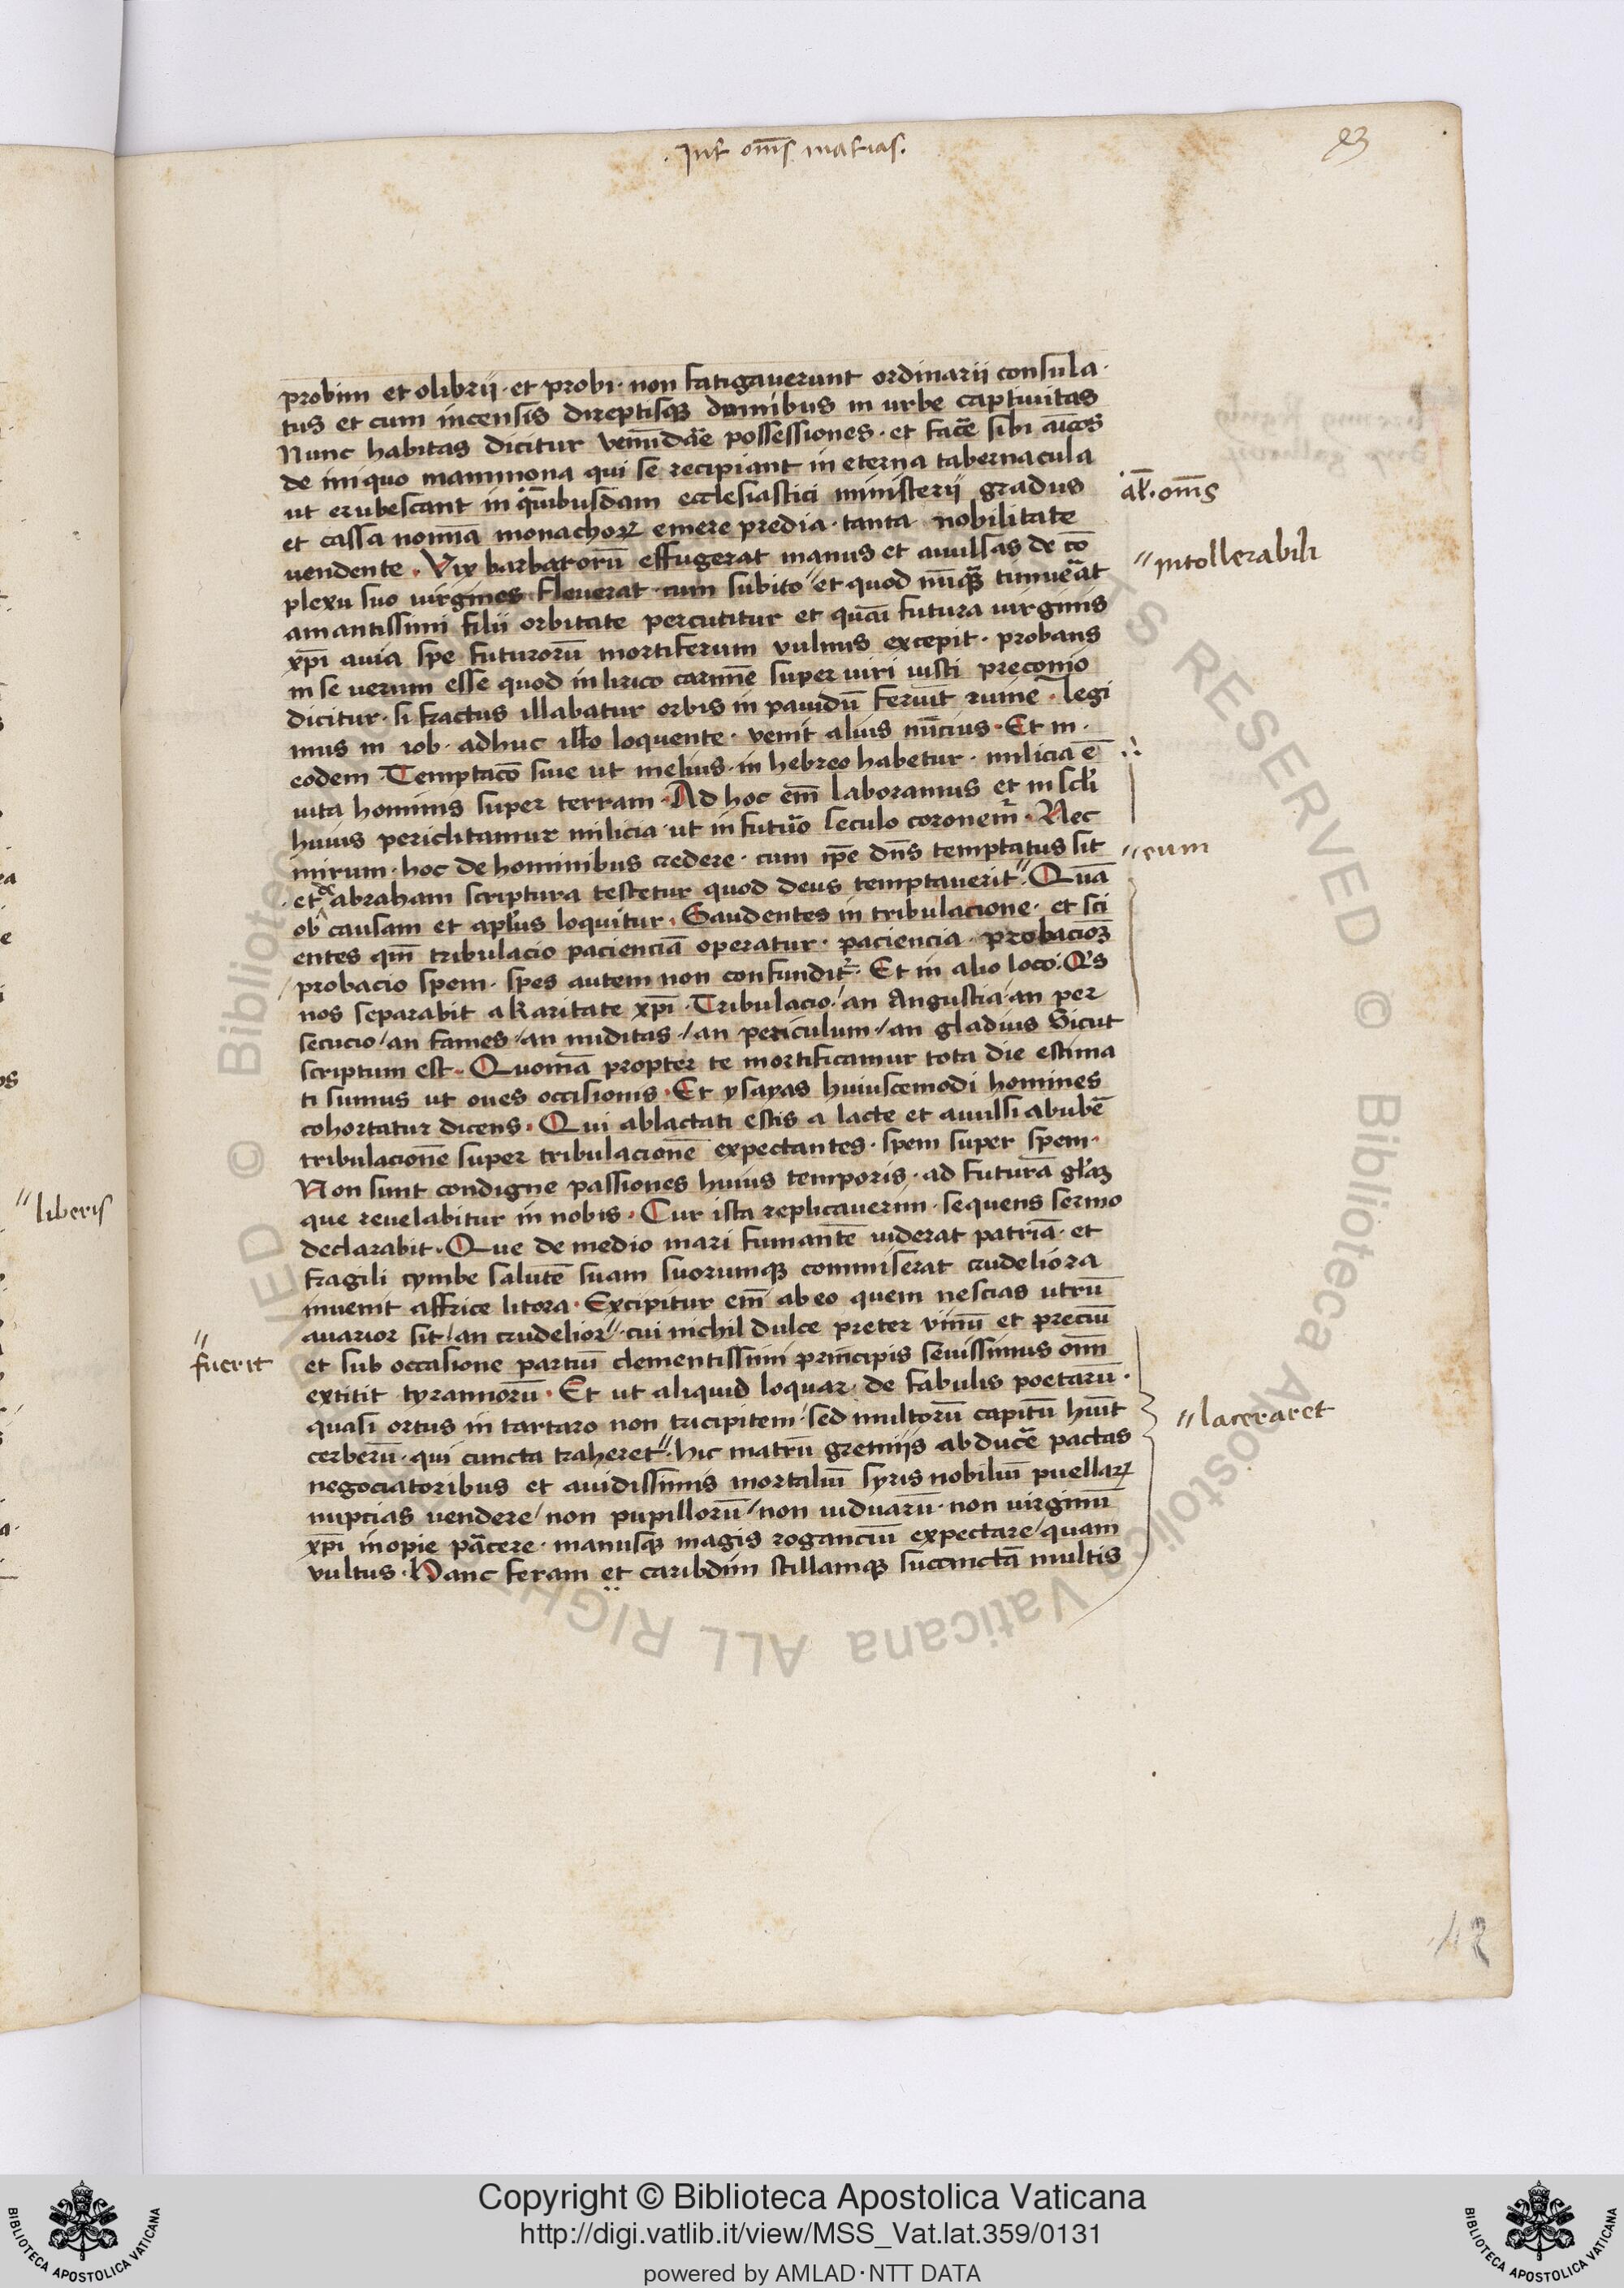 .Int̄ om̄s mat̄ias.
93
probim et olibrij · et probi · non fatigauerunt ordinarii consula ·
tus et cum incensis direptisq domibus in urbe captiuitas
Nunc habitas dicitur venūdare possessiones · et facē sibi aīcos
de iniquo mammona qui se recipiant in eterna tabernacula
ut erubescant in quibusdam ecclesiastici ministerij gradus
al̄. om̄s
et cassa nomīa monachorꝝ emere predia · tanta nobilitate
uendente · Vix barbarorū effugerat manus et auulsas de cō
"intollerabili
plexu suo uirgines fleuerat cum subito " et quod nūq̄ timueāt
amantissimi filii orbitate percutitur et quāī futura uirginis
xp̄i auia spe futurorū mortiferum vulnus excepit · probans
in se uerum esse quod in lirico carmīe super uiri iusti preconio
dicitur · si fractus illabatur orbis in pauidū feriūt ruine · legi
mus in iob · adhuc illo loquente · venit alius nūcius · Et in ·
eodem · Temptacō siue ut melius · in hebreo habetur · milicia ē
uita hominis super terram · Ad hoc em̄ laboramus et in scl̄i
huius periclitamur milicia · ut in futuō seculo coronem̄ · Nec
mirum · hoc de hominibus credere · cum ip̄e dn̄s temptatus sit
"eum
et de abraham scriptura testetur quod deus temptauerit " · Quā
ob causam et apl̄us loquitur · Gaudentes in tribulacione · et sci
entes qm̄ tribulacio pacienciā operatur · paciencia probacioꝫ
probacio spem · spes autem non confundit᷑ · Et in alio loco : Qⁱs
nos separabit a karitate xp̄i · Tribulacio / an Angustia / an per
secucio / an fames / an nuditas / an periculum / an gladius Sicut
scriptum est · Quoniā propter te mortificamur tota die estima
ti sumus ut oues occisionis · Et ysayas huiuscemodi homines
cohortatur dicens · Qui ablactati estis a lacte et auulsi ab ubē
tribulacionē super tribulacionē expectantes · spem super spem ·
Non sunt condigne passiones huius temporis · ad futurā gl̄aꝫ
que reuelabitur in nobis · Cur ista replicauerim · sequens sermo
declarabit · Que de medio mari fumantē uiderat patriā · et
fragili cymbe salutē suam suorumq commiserat crudeliora
inuenit affrice litora · Excipitur em̄ ab eo quem nescias utrū
auarior sit / an crudelior " · cui nichil dulce preter vinū et preciū
"fuerit
et sub occasione partiū clementissimi principis seuissimus om̄
extitit tyrannorū · Et ut aliquid loquar · de fabulis poetarū ·
quasi ortus in tartaro non tricipitem / sed multorū capitū hūit
"laceraret
cerberū · qui cuncta traheret " · hic matrū gremijs abducē pactas
negociatoribus et auidissimis mortaliū syris nobiliū puellarꝝ
nupcias vendere / non pupillorū / non uiduarū · non uirginū
xp̄i inopie pāere · manusq magis roganciū expectare / quam
vultus · Hanc feram et caribdim scillamq succinctā multis
"liberis
42
Copyright © Biblioteca Apostolica Vaticana
http://digi.vatlib.it/view/MSS_Vat.lat.359/0131
powered by AMLAD·NTT DATA